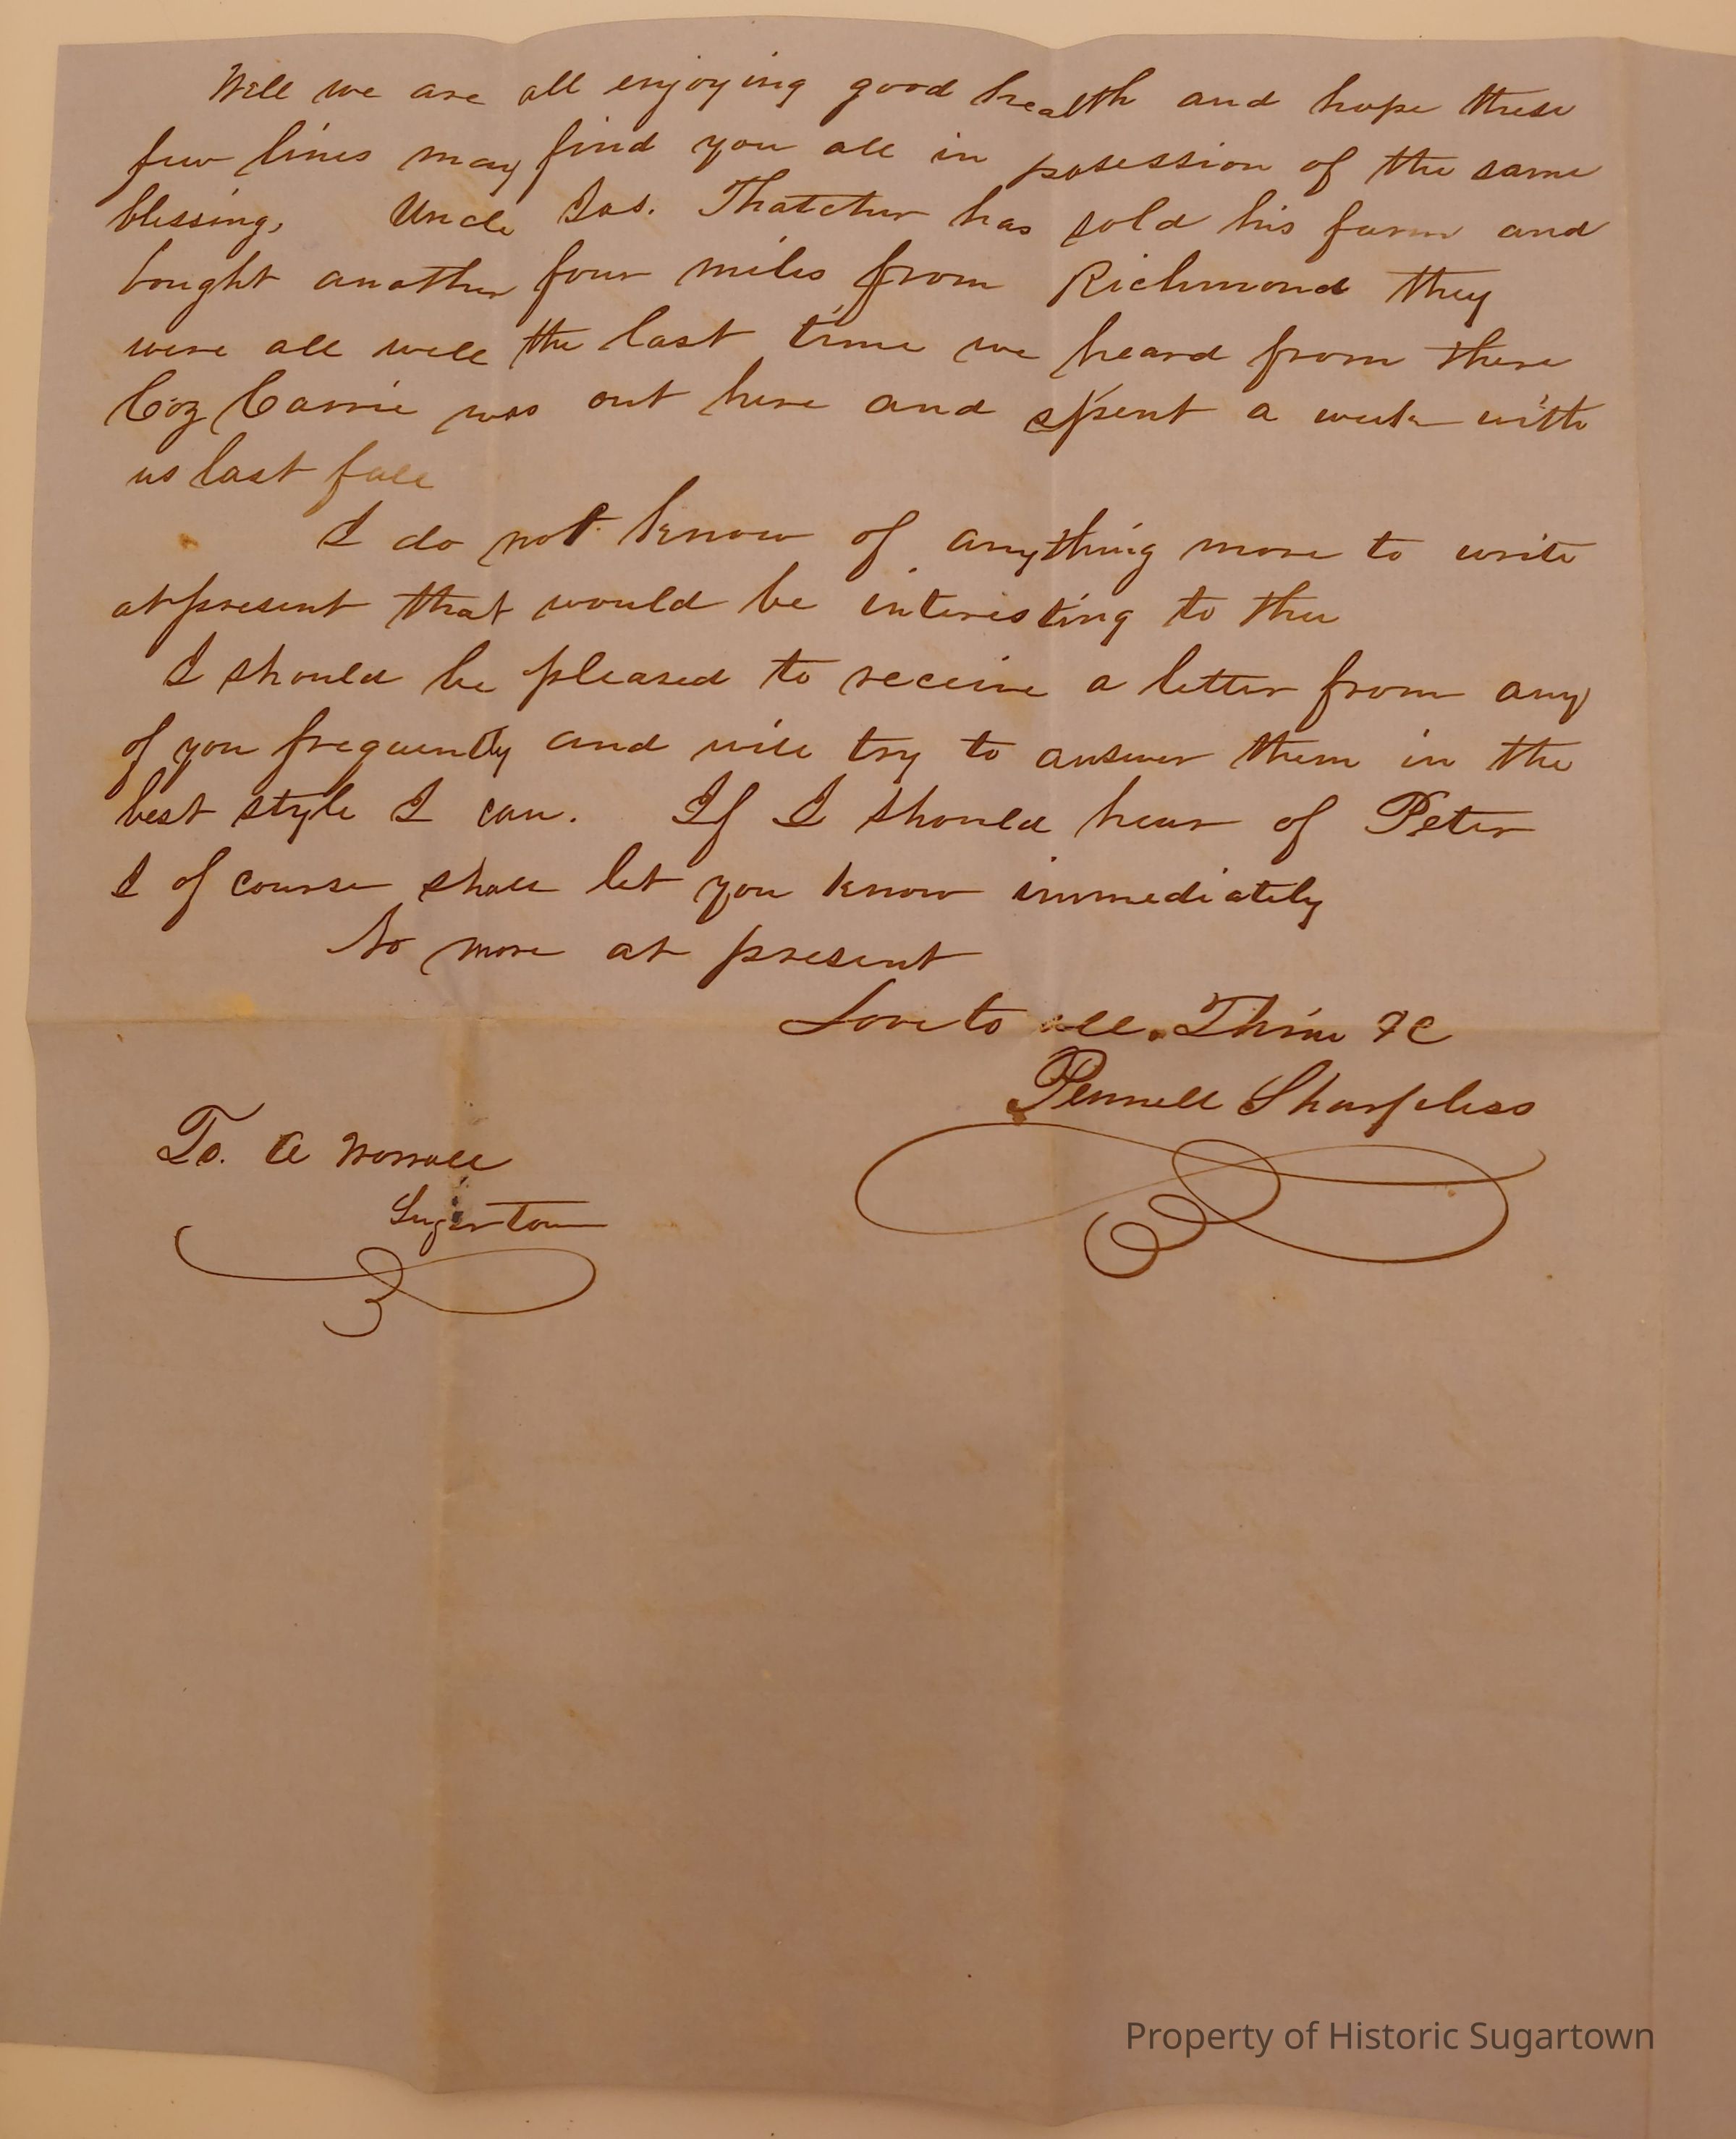 Well we are all enjoying good health and hope these
few lines may find you all in posession of the same
blessing, Uncle Jos. Thatcher has sold his farm and
bought another four miles from Richmond they
were all well the last time we heard from there
Coz Carrie was out here and spent a week with
us last fall
I do not know of anything more to write
at present that would be interesting to thee
I should be pleased to receive a letter from any
of you frequently and will try to answer them in the
best style I can. If I should hear of Peter
I of course shall let you know immediately
No more at present
Love to all. Thine &C
Pennell Sharpless
To. A Worrall
Sugartown
Property of Historic Sugartown